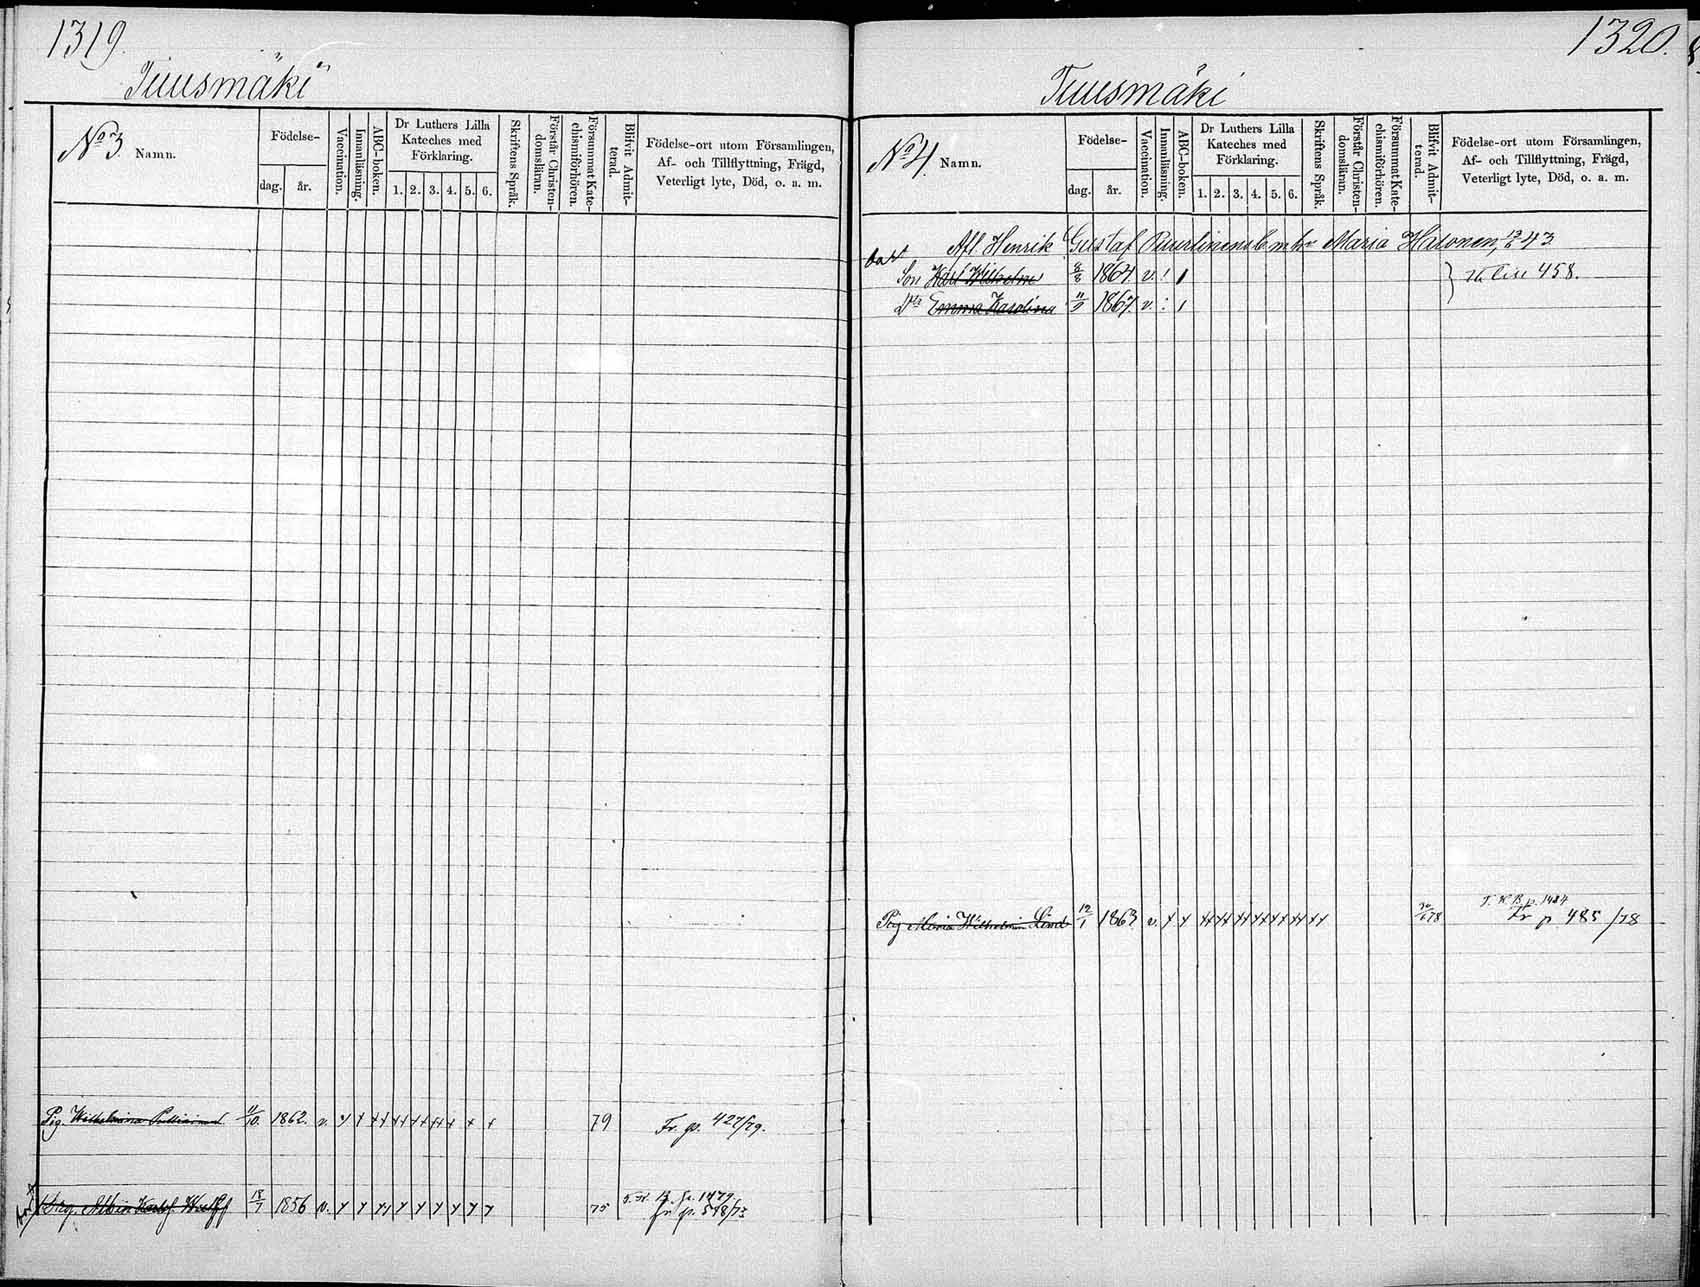 1319.
Tuusmäki
No 3. Namn.
Födelse-
dag.
år.
Vaccination.
Innanläsning.
ABC-boken.
Dr Luthers Lilla
Kateches med
Förklaring.
1. 2. 3. 4. 5. 6.
Skriftens Språk.
Förstår Christen-
domsläran.
Försummat Kate-
chismiförhören.
Blifvit Admit-
terad.
Födelse-ort utom Församlingen,
Af- och Tillflyttning, Frägd,
Veterligt lyte, Död, o. a. m.
Pig. Wilhelmina 11/10. 1862. v. 79 Fr. p. 427/79.
Albin 18/7 1856 v. 75 fr p. 578/73
1320.
Tuusmäki
No 4. Namn.
Födelse-
dag.
år.
Vaccination.
Innanläsning.
ABC-boken.
Dr Luthers Lilla
Kateches med
Förklaring.
1. 2. 3. 4. 5. 6.
Skriftens Språk.
Förstår Christen-
domsläran.
Försummat Kate-
chismiförhören.
Blifvit Admit-
terad.
Födelse-ort utom Församlingen,
Af- och Tillflyttning, Frägd,
Veterligt lyte, Död, o. a. m.
Afl. Henrik Gustaf Maria 43
Son Karl Wilhelm 1864. v. 458.
Dtr Emma Karolina 11/9 1867. v.
Pig Maria Wilhelmin 12/1 1863 v. T. K. B. p. 1484
Fr p 485/78